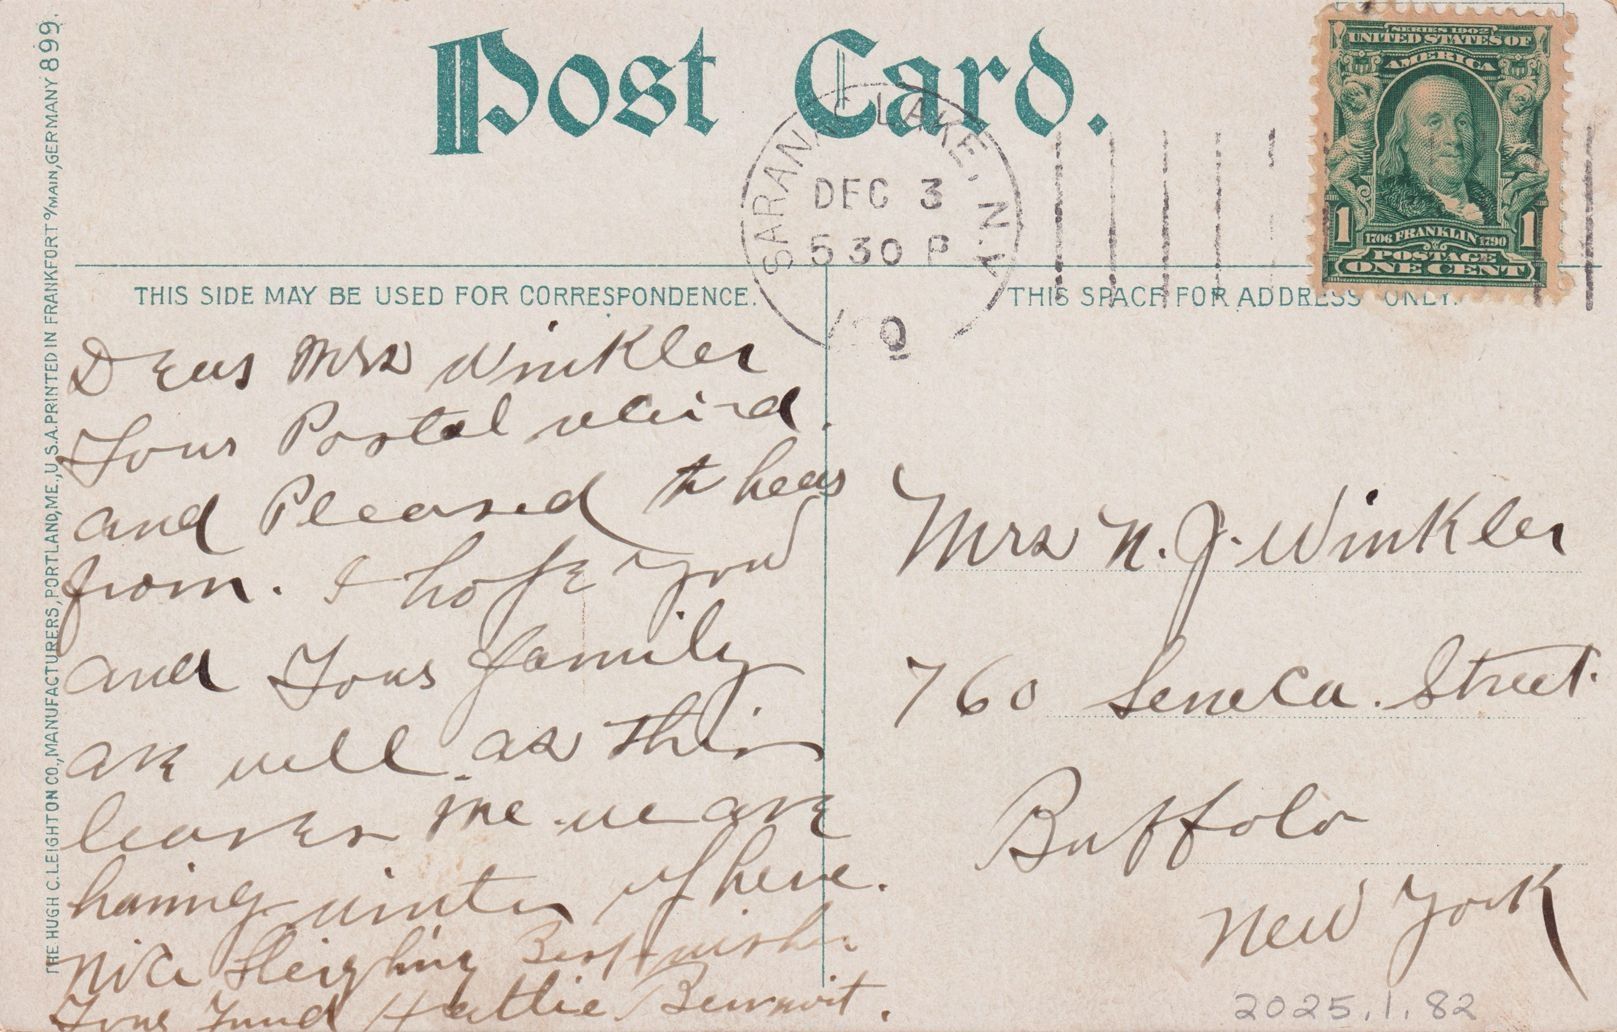 Post Card.
SERIES 1902
UNITED STATES OF
AMERICA
1 1706 FRANKLIN 1790 1
POSTAGE
ONE CENT
SARANAC LAKE, N.Y.
DEC 3
5 30 P
THIS SIDE MAY BE USED FOR CORRESPONDENCE.
THIS SPACE FOR ADDRESS ONLY.
THE HUGH C. LEIGHTON CO., MANUFACTURERS, PORTLAND, ME., U.S.A. PRINTED IN FRANKFORT o/MAIN, GERMANY 899.
Dear Mrs Winkler
Your Postal recieved
and Pleased to hear
from. I hope you
and Your family
are well as this
leaves me we are
having winter up here.
Nice Sleighing Best wishes
Your Friend Hattie
Mrs N. J. Winkler
760 Seneca. Street.
Buffalo
New York
2025.1.82